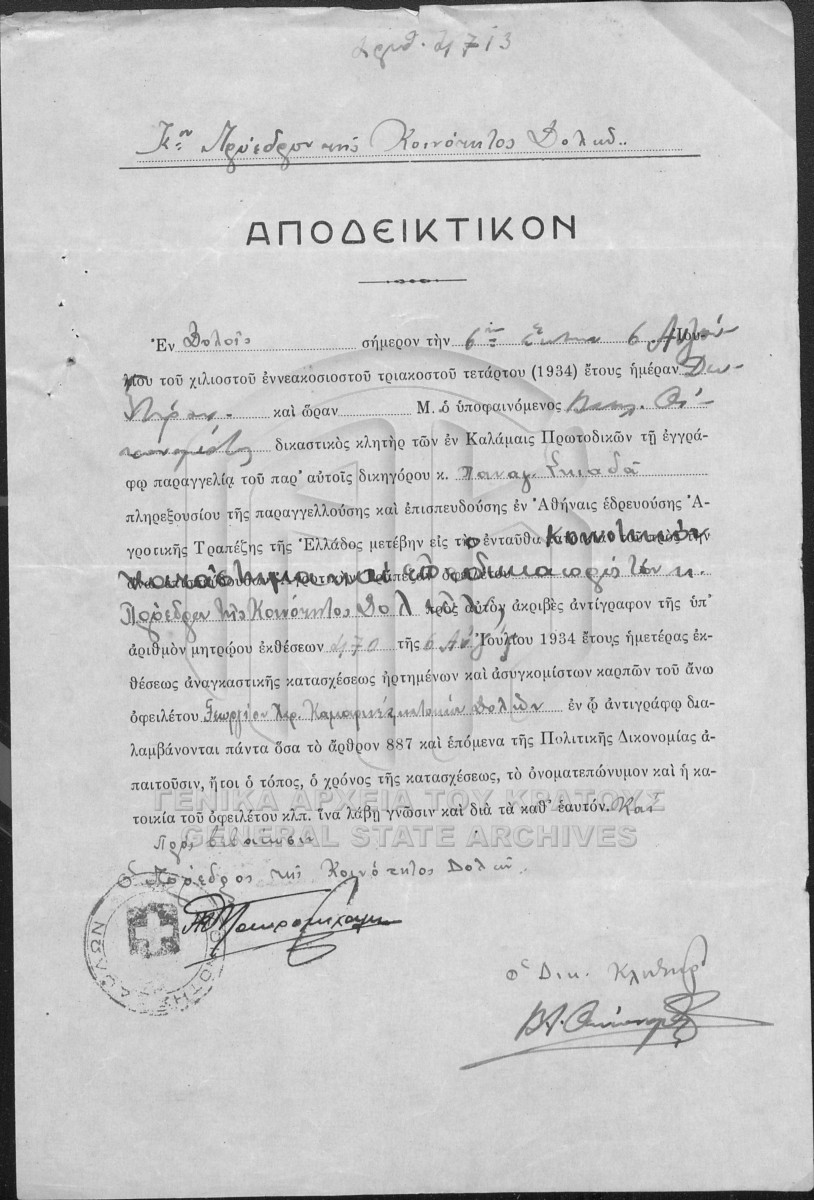 Ἀριθ. 4713
Κον Πρόεδρον τῆς Κοινότητος Δολῶν
ΑΠΟΔΕΙΚΤΙΚΟΝ
Ἐν Δολοῖς σήμερον τὴν 6ην Ἕκτην 6 Αὐγού-
στου τοῦ χιλιοστοῦ ἐννεακοσιοστοῦ τριακοστοῦ τετάρτου (1934) ἔτους ἡμέραν Δευ-
τέραν καὶ ὥραν Μ. ὁ ὑποφαινόμενος Βασ. Οἰ-
κονομέας δικαστικὸς κλητὴρ τῶν ἐν Καλάμαις Πρωτοδικῶν τῇ ἐγγρά-
φῳ παραγγελίᾳ τοῦ παρ' αὐτοῖς δικηγόρου κ. Παναγ. Σκιαδᾶ
πληρεξουσίου τῆς παραγγελλούσης καὶ ἐπισπευδούσης ἐν Ἀθήναις ἑδρευούσης Ἀ-
γροτικῆς Τραπέζης τῆς Ἑλλάδος μετέβην εἰς τὸ ἐνταῦθα Κοινοτικὸν
κατάστημα καὶ ἐπέδωκα πρὸς τὸν κ.
Πρόεδρον τῆς Κοινότητος Δολῶν πρὸς αὐτὸν ἀκριβὲς ἀντίγραφον τῆς ὑπ'
ἀριθμὸν μητρῴου ἐκθέσεων 470 τῆς 6 Αὐγ Ἰουλίου 1934 ἔτους ἡμετέρας ἐκ-
θέσεως ἀναγκαστικῆς κατασχέσεως ἠρτημένων καὶ ἀσυγκομίστων καρπῶν τοῦ ἄνω
ὀφειλέτου Γεωργίου Χρ. Δολῶν ἐν ᾧ ἀντιγράφῳ δια-
λαμβάνονται πάντα ὅσα τὸ ἄρθρον 887 καὶ ἑπόμενα τῆς Πολιτικῆς Δικονομίας ἀ-
παιτοῦσιν, ἤτοι ὁ τόπος, ὁ χρόνος τῆς κατασχέσεως, τὸ ὀνοματεπώνυμον καὶ ἡ κα-
τοικία τοῦ ὀφειλέτου κλπ. ἵνα λάβῃ γνῶσιν καὶ διὰ τὰ καθ' ἑαυτόν. Καὶ
ΓΕΝΙΚΑ ΑΡΧΕΙΑ ΤΟΥ ΚΡΑΤΟΥΣ
GENERAL STATE ARCHIVES
πρὸς
Ὁ Πρόεδρος τῆς Κοινότητος Δολῶν
ΚΟΙΝΟΤΗΣ ΔΟΛΩΝ
ὁ Δικ. Κλητήρ